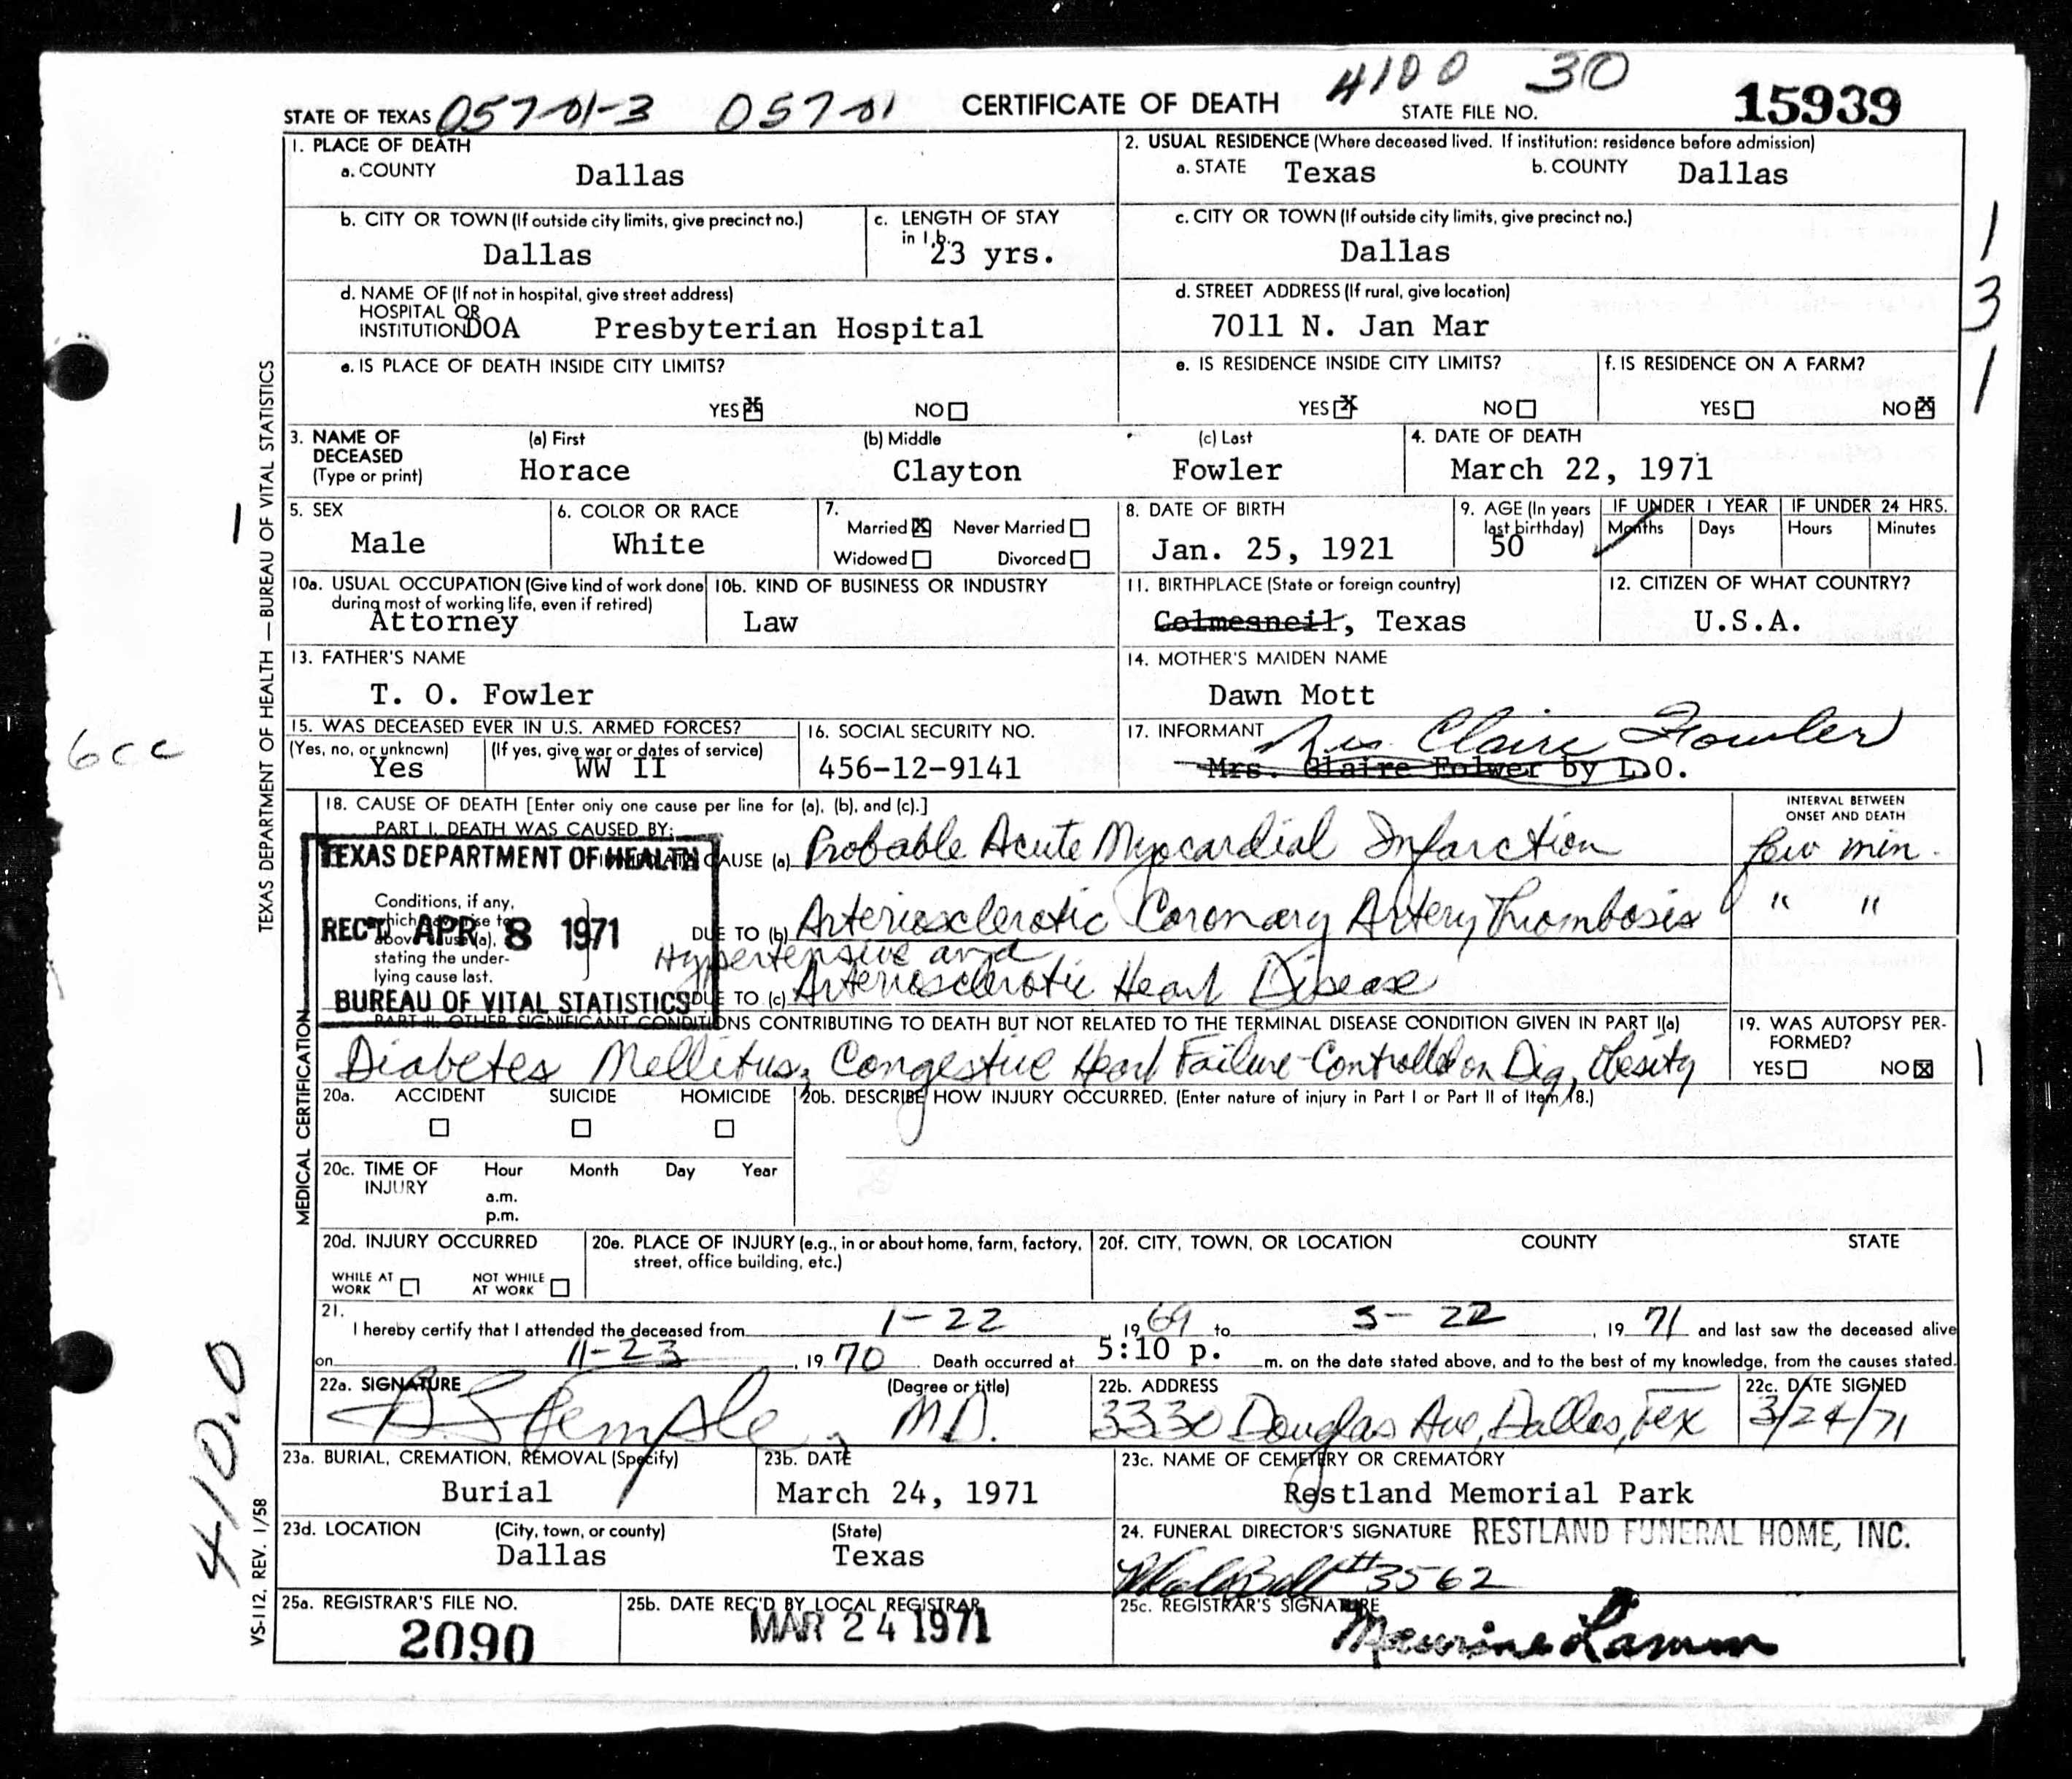 4100 30
STATE OF TEXAS 05701-3 05701 CERTIFICATE OF DEATH STATE FILE NO. 15939
1. PLACE OF DEATH
a. COUNTY Dallas
2. USUAL RESIDENCE (Where deceased lived. If institution: residence before admission)
a. STATE Texas b. COUNTY Dallas
b. CITY OR TOWN (If outside city limits, give precinct no.)
Dallas
c. LENGTH OF STAY
in 1.b.
23 yrs.
c. CITY OR TOWN (If outside city limits, give precinct no.)
Dallas
1
d. NAME OF (If not in hospital, give street address)
HOSPITAL OR
INSTITUTION DOA Presbyterian Hospital
d. STREET ADDRESS (If rural, give location)
7011 N. Jan Mar
3
e. IS PLACE OF DEATH INSIDE CITY LIMITS?
YES NO
e. IS RESIDENCE INSIDE CITY LIMITS?
YES NO
f. IS RESIDENCE ON A FARM?
YES NO
1
3. NAME OF
DECEASED
(Type or print)
(a) First (b) Middle (c) Last
Horace Clayton Fowler
4. DATE OF DEATH
March 22, 1971
5. SEX
Male
1
6. COLOR OR RACE
White
7.
Married Never Married
Widowed Divorced
8. DATE OF BIRTH
Jan. 25, 1921
9. AGE (In years
last birthday)
50
IF UNDER 1 YEAR IF UNDER 24 HRS.
Months Days Hours Minutes
10a. USUAL OCCUPATION (Give kind of work done
during most of working life, even if retired)
Attorney
10b. KIND OF BUSINESS OR INDUSTRY
Law
11. BIRTHPLACE (State or foreign country)
Colmesneil, Texas
12. CITIZEN OF WHAT COUNTRY?
U.S.A.
13. FATHER'S NAME
T. O. Fowler
14. MOTHER'S MAIDEN NAME
Dawn Mott
15. WAS DECEASED EVER IN U.S. ARMED FORCES?
(Yes, no, or unknown) (If yes, give war or dates of service)
Yes WW II
16. SOCIAL SECURITY NO.
456-12-9141
17. INFORMANT Mrs. Claire Fowler
Mrs. Claire Folwer by L.O.
6cc
18. CAUSE OF DEATH [Enter only one cause per line for (a), (b), and (c).]
INTERVAL BETWEEN
ONSET AND DEATH
PART I. DEATH WAS CAUSED BY:
IMMEDIATE CAUSE (a) Probable Acute Myocardial Infarction few min.
TEXAS DEPARTMENT OF HEALTH
REC'D APR 8 1971
BUREAU OF VITAL STATISTICS
Conditions, if any,
which gave rise to
above cause (a),
stating the under-
lying cause last.
DUE TO (b) Arteriosclerotic Coronary Artery Thrombosis " "
Hypertensive and
DUE TO (c) Arteriosclerotic Heart Disease
PART II. OTHER SIGNIFICANT CONDITIONS CONTRIBUTING TO DEATH BUT NOT RELATED TO THE TERMINAL DISEASE CONDITION GIVEN IN PART I(a)
Diabetes Mellitus, Congestive Heart Failure-Controlled on Dig, Obesity
19. WAS AUTOPSY PER-
FORMED?
YES NO
1
20a. ACCIDENT SUICIDE HOMICIDE
20b. DESCRIBE HOW INJURY OCCURRED. (Enter nature of injury in Part I or Part II of Item 18.)
20c. TIME OF
INJURY
Hour Month Day Year
a.m.
p.m.
20d. INJURY OCCURRED
WHILE AT
WORK
NOT WHILE
AT WORK
20e. PLACE OF INJURY (e.g., in or about home, farm, factory,
street, office building, etc.)
20f. CITY, TOWN, OR LOCATION COUNTY STATE
21.
I hereby certify that I attended the deceased from 1-22 1969 to 3-22, 1971 and last saw the deceased alive
on 11-23, 1970. Death occurred at 5:10 p. m. on the date stated above, and to the best of my knowledge, from the causes stated.
22a. SIGNATURE (Degree or title)
M.D.
22b. ADDRESS
3330 Douglas Ave, Dallas, Tex
22c. DATE SIGNED
3/24/71
23a. BURIAL, CREMATION, REMOVAL (Specify)
Burial
23b. DATE
March 24, 1971
23c. NAME OF CEMETERY OR CREMATORY
Restland Memorial Park
23d. LOCATION (City, town, or county) (State)
Dallas Texas
24. FUNERAL DIRECTOR'S SIGNATURE RESTLAND FUNERAL HOME, INC.
#3562
25a. REGISTRAR'S FILE NO.
2090
25b. DATE REC'D BY LOCAL REGISTRAR
MAR 24 1971
25c. REGISTRAR'S SIGNATURE
Maurine Lamm
TEXAS DEPARTMENT OF HEALTH — BUREAU OF VITAL STATISTICS
MEDICAL CERTIFICATION
410.0
VS-112. REV. 1/58